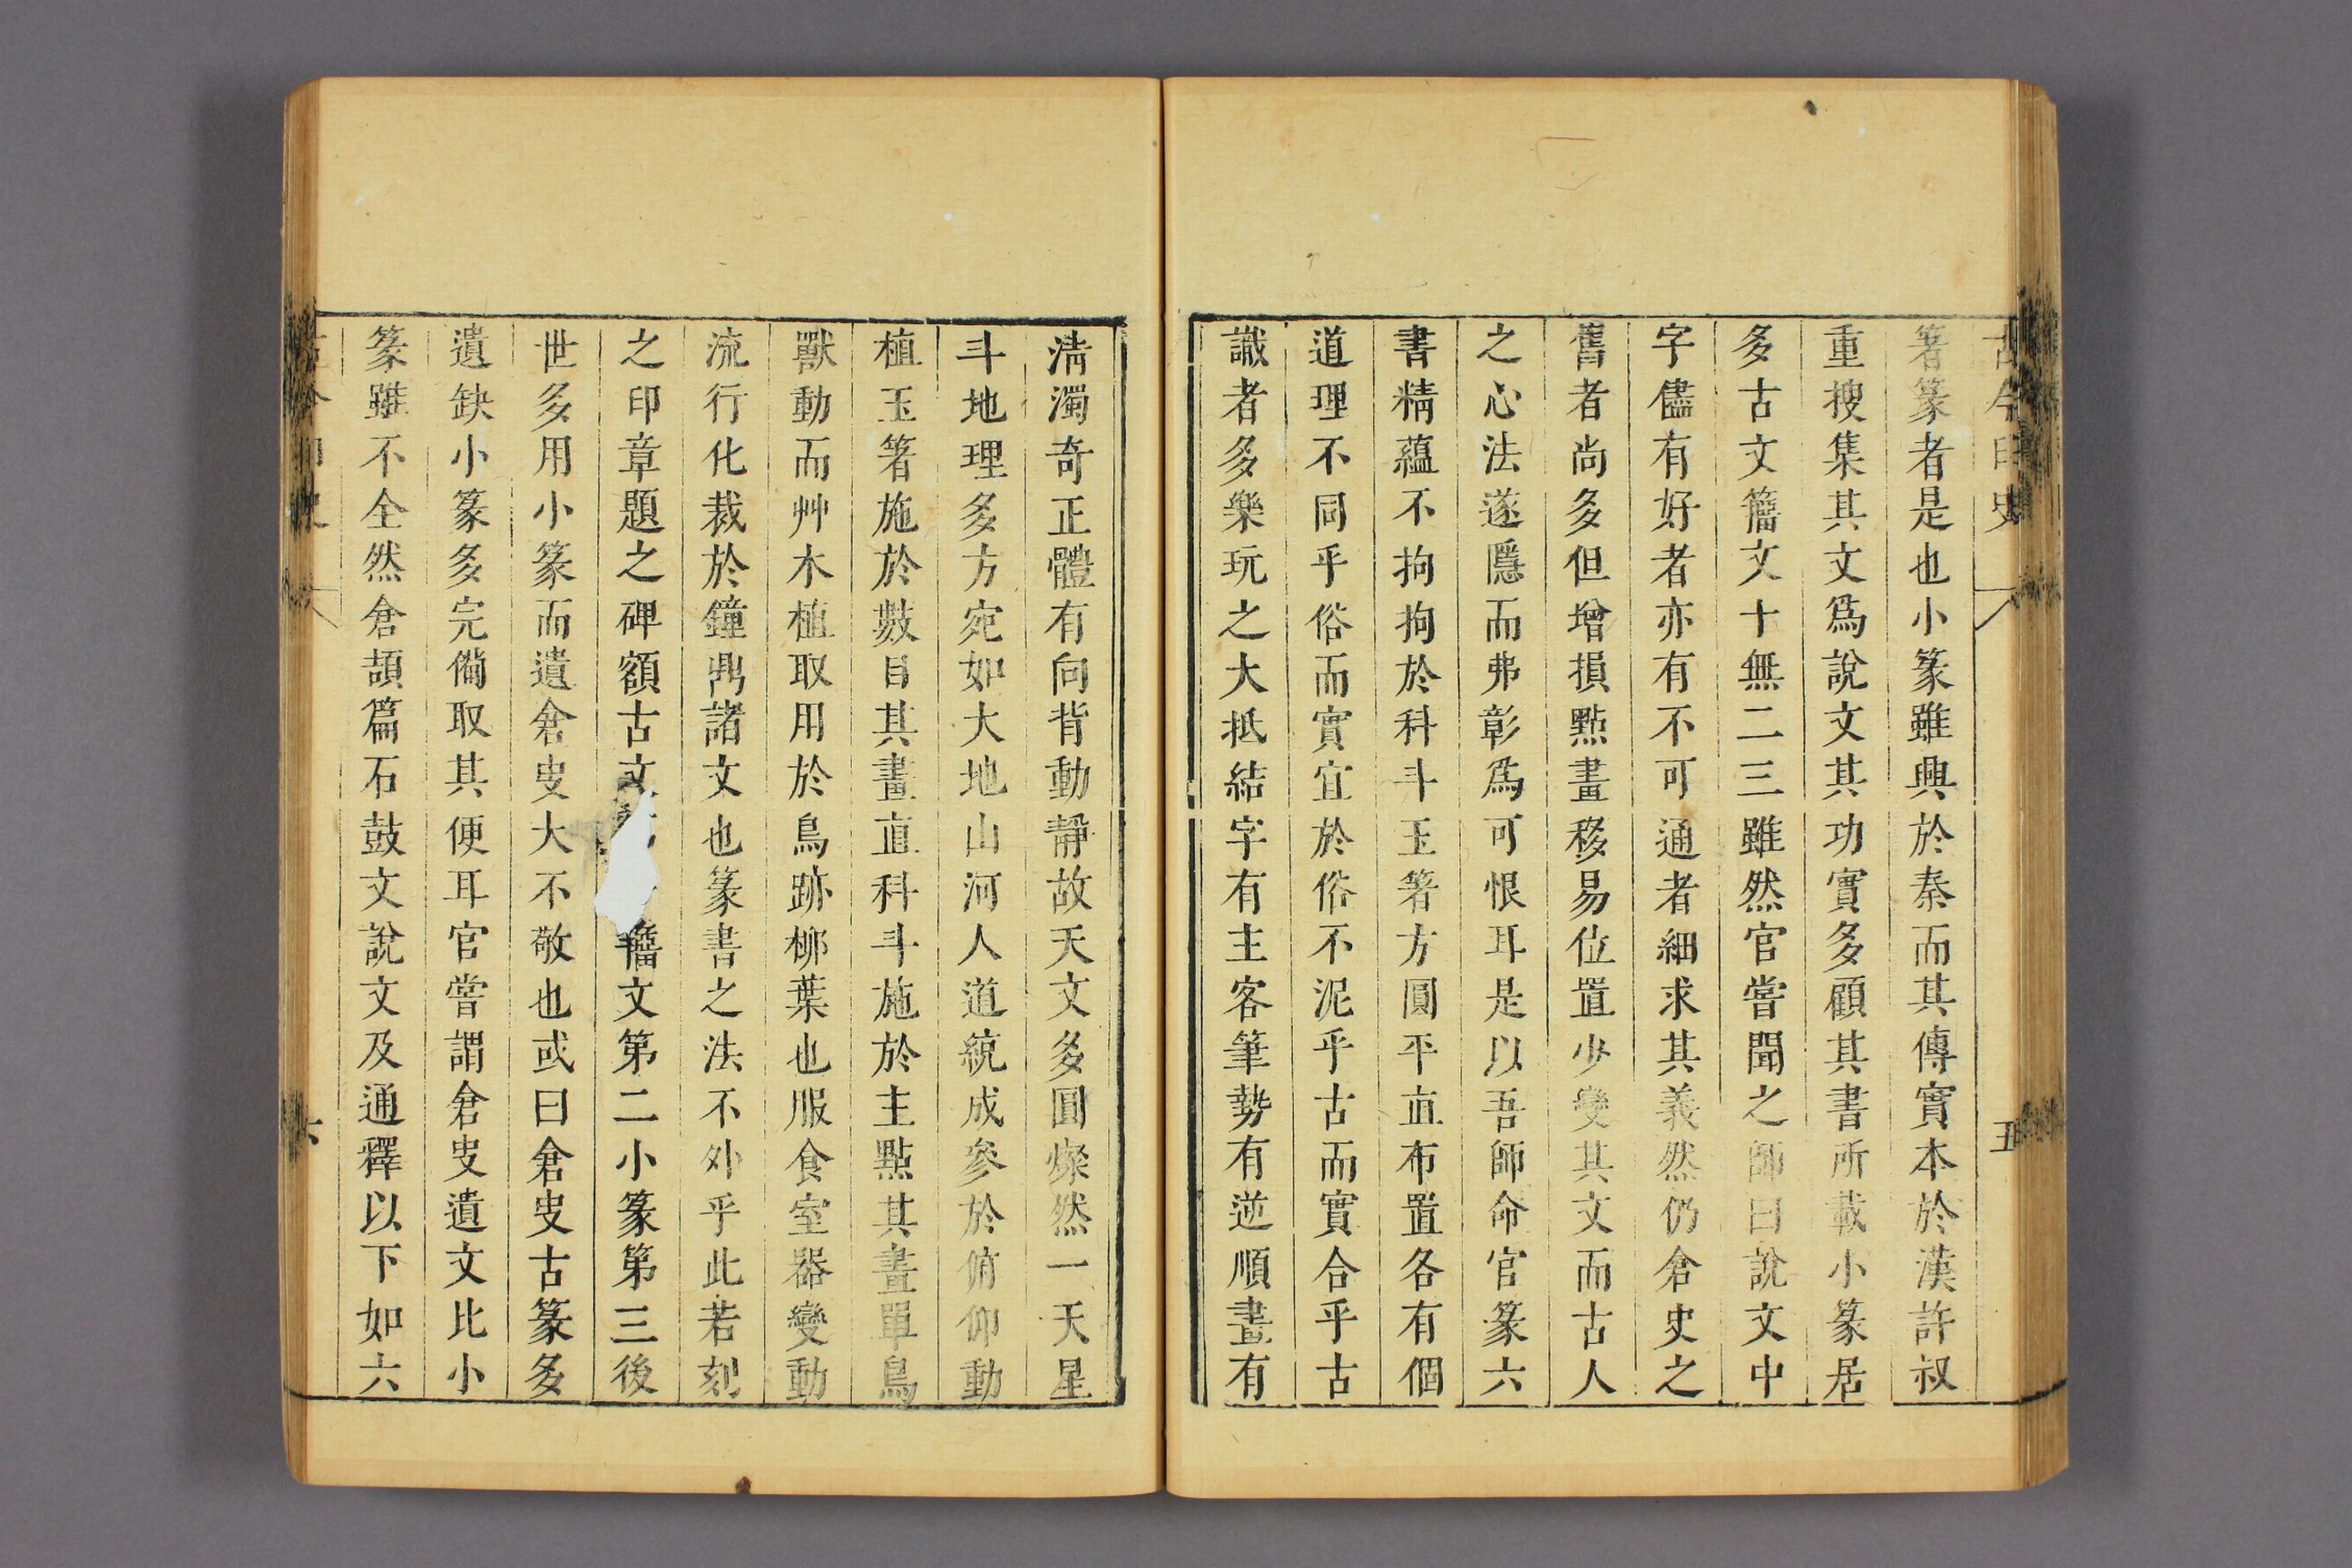 古今印史
五
箸篆者是也小篆雖興於秦而其傳實本於漢許叔
重搜集其文爲說文其功實多顧其書所載小篆居
多古文籒文十無二三雖然官嘗聞之師曰說文中
字儘有好者亦有不可通者細求其義然仍倉史之
舊者尚多但增損點畫移易位置少變其文而古人
之心法遂隱而弗彰爲可恨耳是以吾師命官篆六
書精蘊不拘拘於科斗玉箸方圓平直布置各有個
道理不同乎俗而實宜於俗不泥乎古而實合乎古
識者多樂玩之大抵結字有主客筆勢有逆順畫有
淸濁奇正體有向背動靜故天文多圓燦然一天星
斗地理多方宛如大地山河人道統成參於俯仰動
植玉箸施於數目其畫直科斗施於主點其畫單鳥
獸動而艸木植取用於鳥跡柳葉也服食室器變動
流行化裁於鐘鼎諸文也篆書之法不外乎此若刻
之印章題之碑額古文籒文第二小篆第三後
世多用小篆而遺倉史大不敬也或曰倉史古篆多
遺缺小篆多完備取其便耳官嘗謂倉史遺文比小
篆雖不全然倉頡篇石鼓文說文及通釋以下如六
六